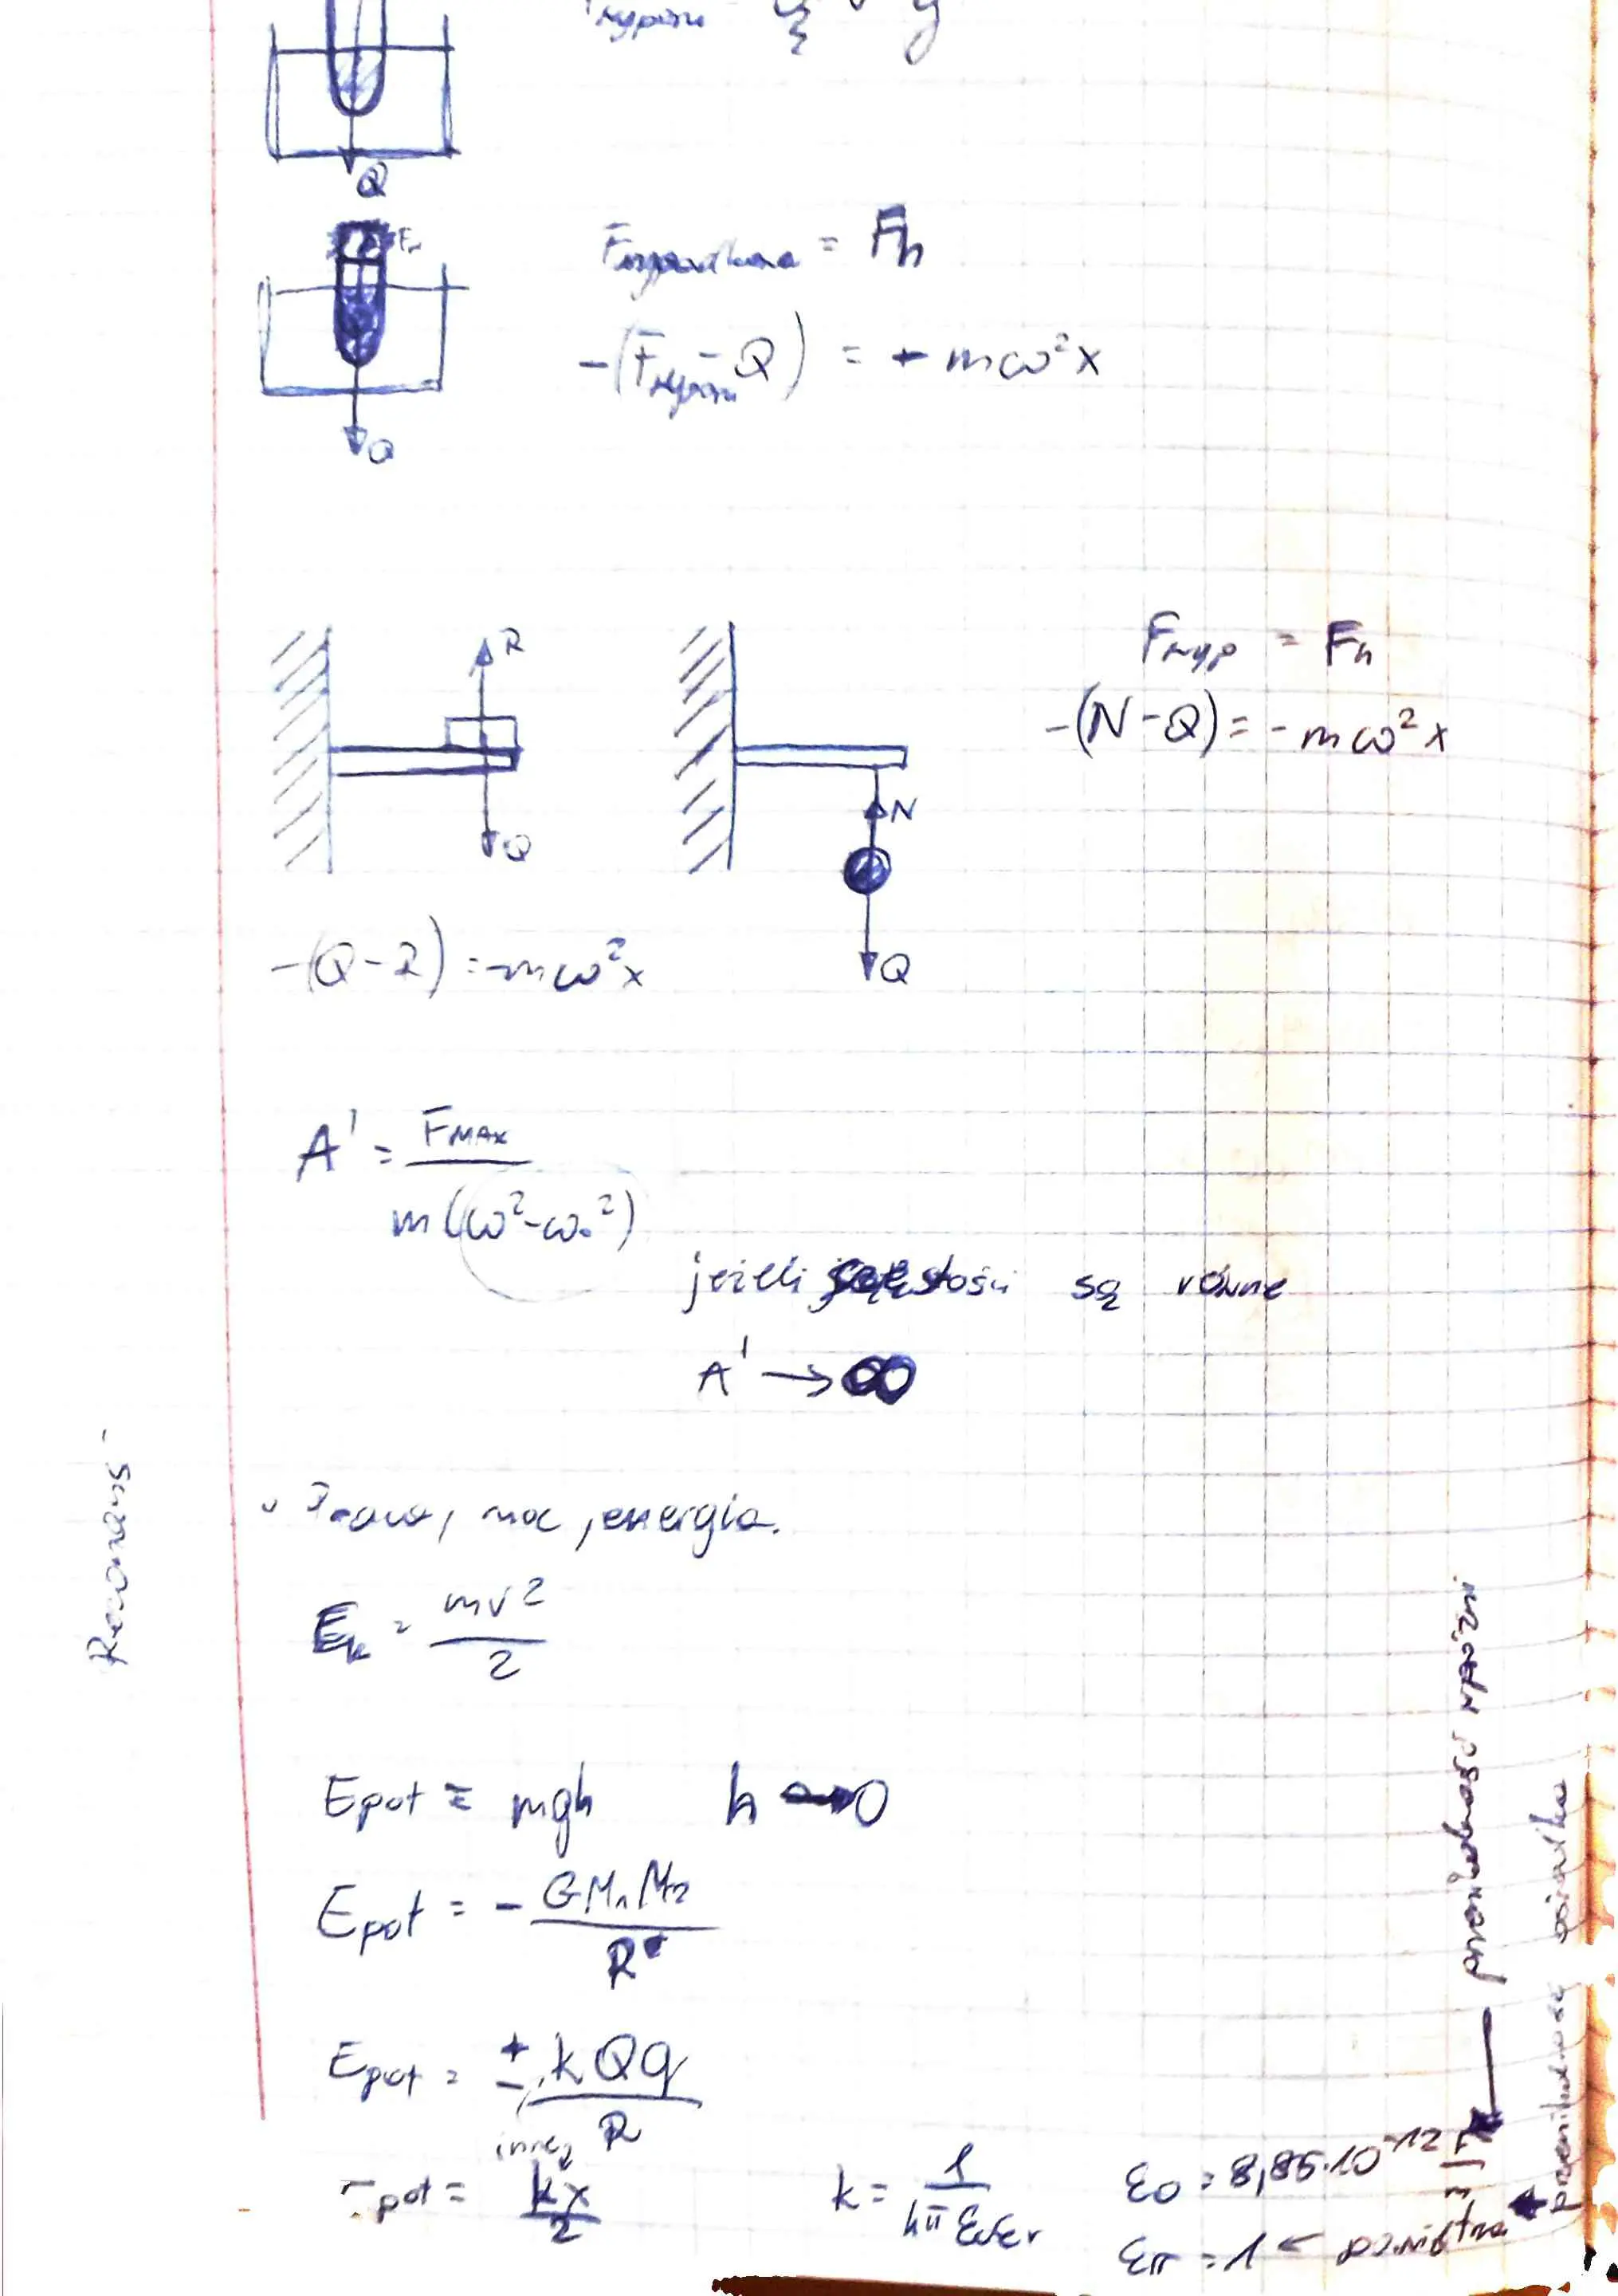 Q
F wyporu = Fh
-(F wyporu - Q) = + mω²x
Q
R
Fwyp = Fh
-(N-Q) = - mω²x
N
Q
Q
-(Q-R) = -mω²x
A' = FMAX / m(ω²-ω₀²)
jeżeli częstości są równe
A' → ∞
Rezonans
Praca, moc, energia.
Ek = mv² / 2
Epot = mgh h → 0
Epot = - GM₁M₂ / R
Epot = ± kQq / R
inne
Epot = kx / 2
k = 1 / 4π ε₀εr
ε₀ = 8,85·10⁻¹² F/m
εr = 1 ← powietrza
przenikalność próżni
przenikalność ośrodka